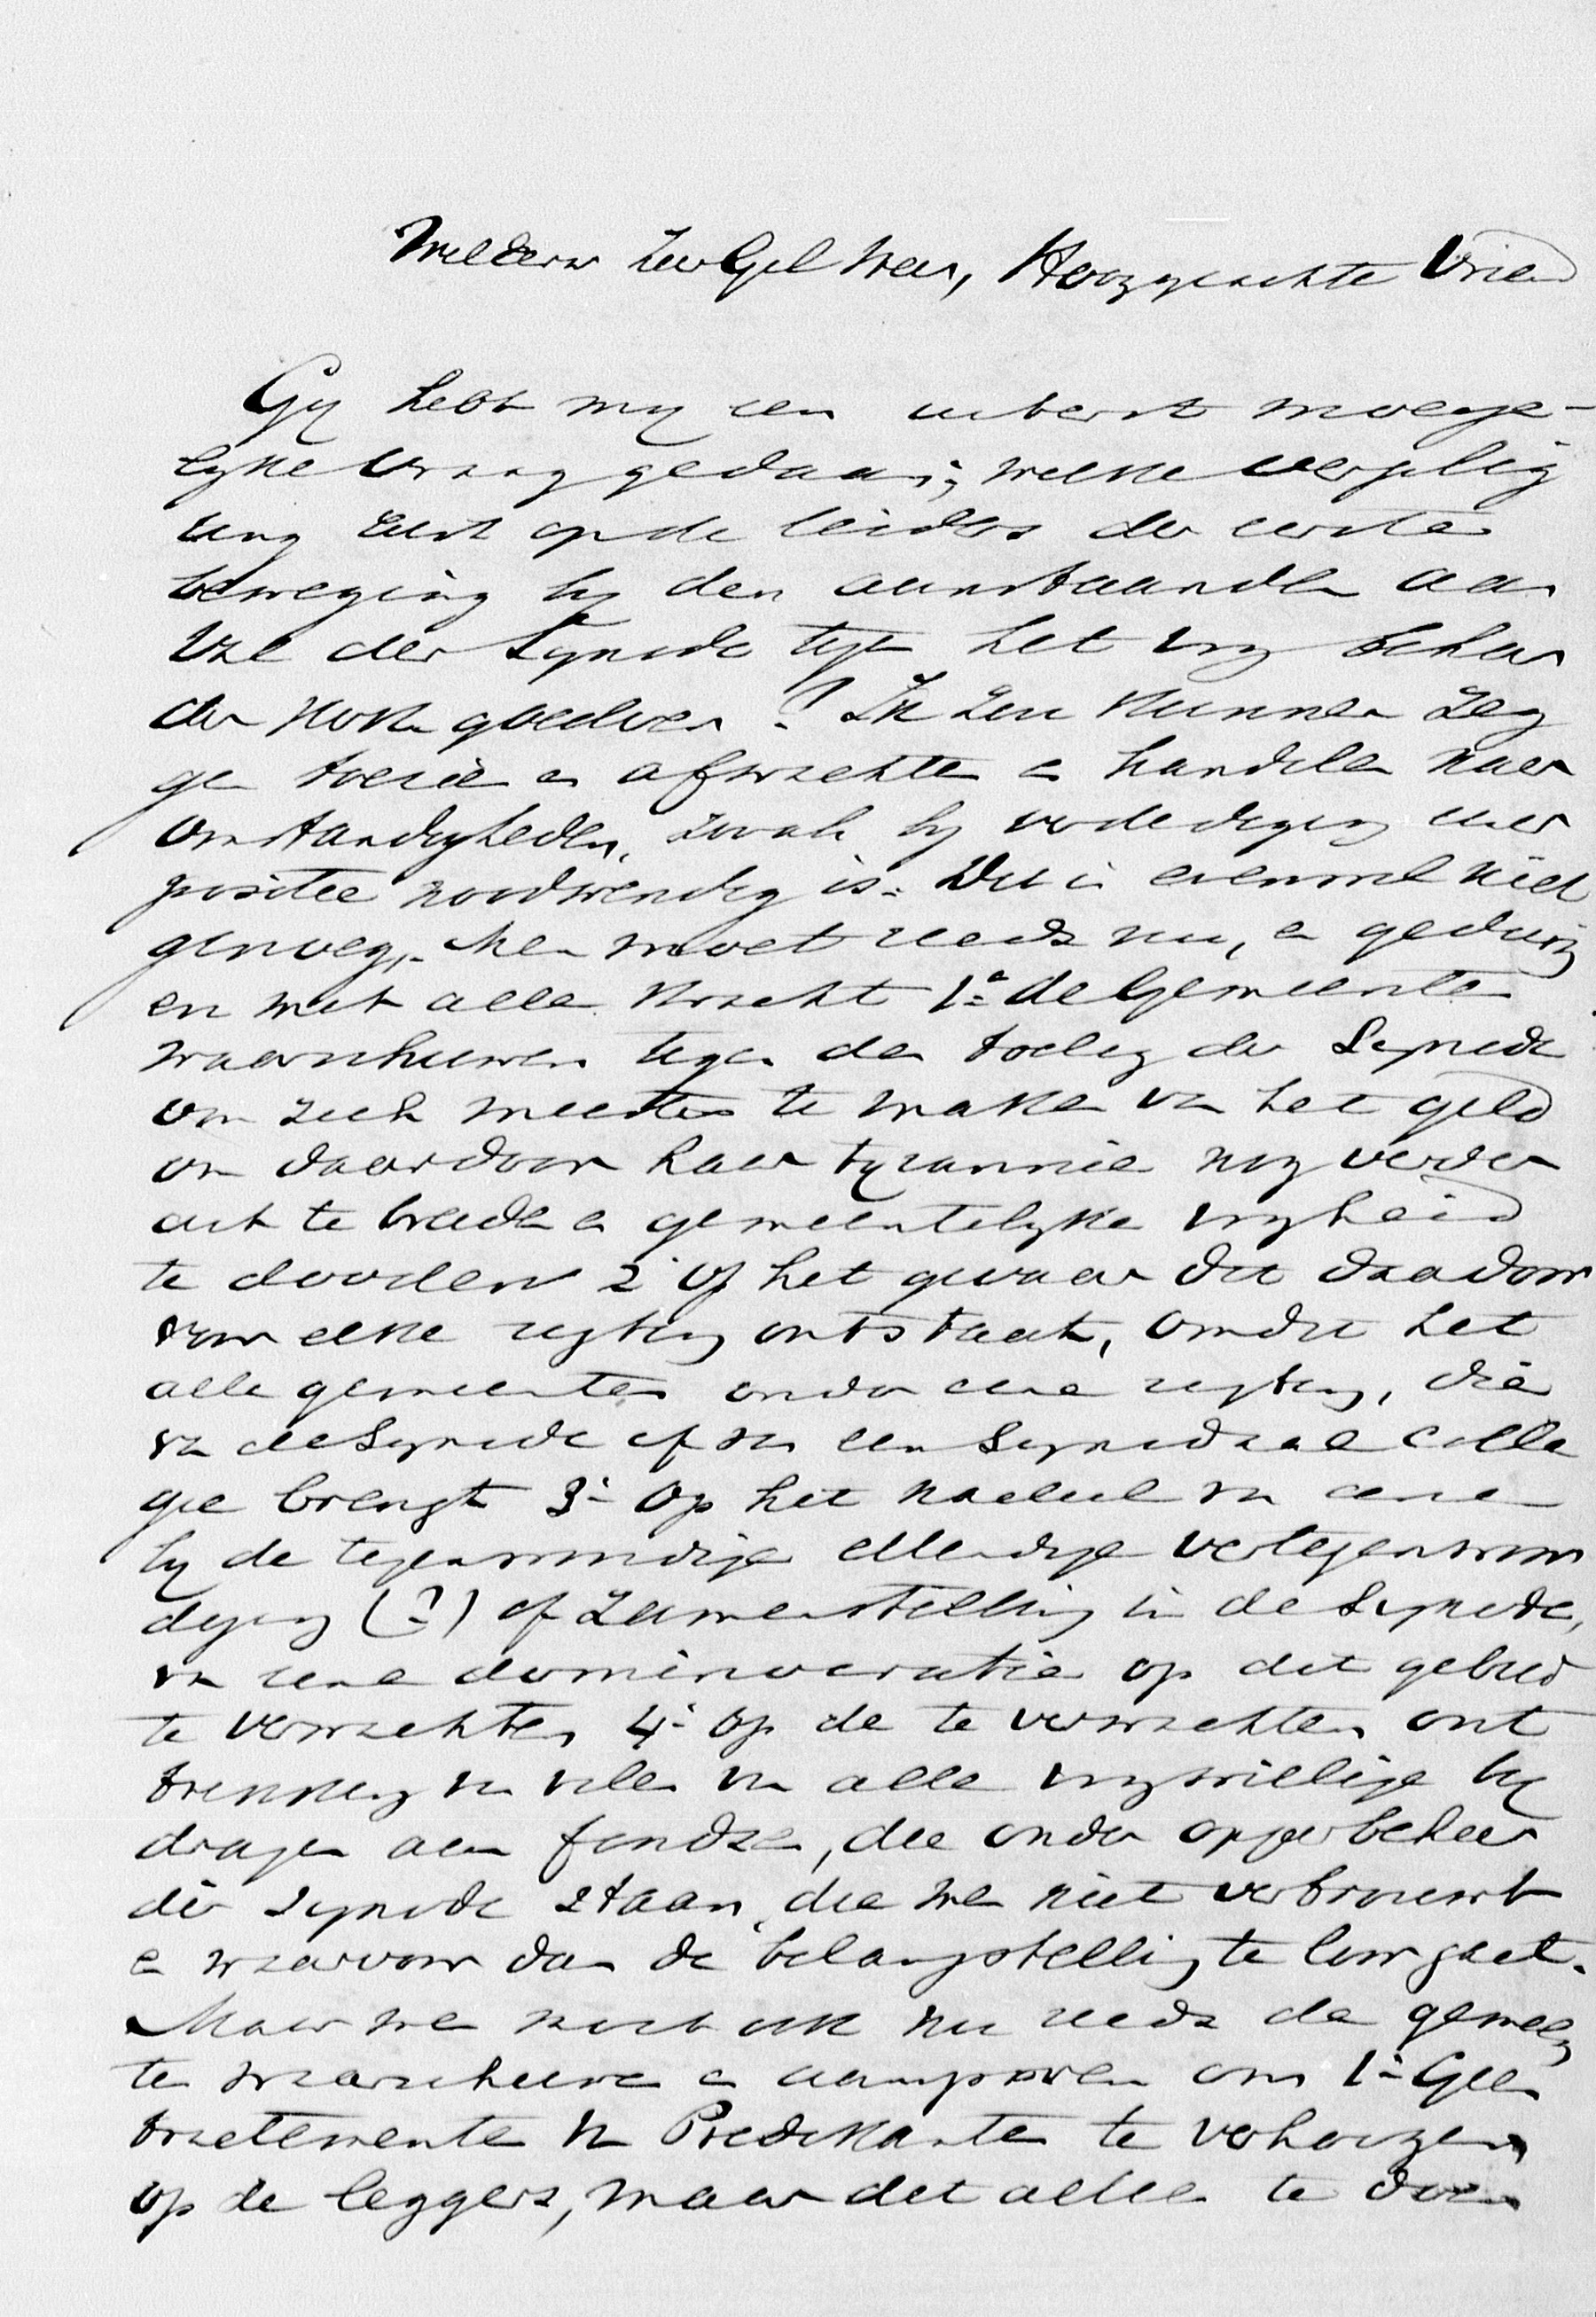 WelEerw ZeerGel Heer, Hooggeachte Vriend
Gij hebt mij een uiterst moeije-
lyke vraag gedaan; welke verplig
ting rust op de leiders der eerste
beweging by den aanstaanden aan
val der Synode tegen het vrij beheer
der kerk. goederen? Ik zou kunnen zeg
gen toezien en afwachten en handelen naar
omstandigheden, zooals by verdediging eener
positie noodwendig is. Dit is evenwel niet
genoeg. Men moet reeds nu, en gedurig
en met alle kracht 1e de Gemeente
waarschuwen tegen den toeleg der Synode
om zich meester te maken van het geld
om daardoor haar tyrannie nog verder
uit te breiden en gemeentelyke vryheid
te dooden 2e op het gevaar dat daardoor
voor elke rigting ontstaat, omdat het
alle gemeenten onder eene rigting, die
van de Synode of van een Synodaal colle
gie brengt 3e Op het nadeel van eene
by de tegenwoordige ellendige vertegenwoor
diging (?) of zamenstelling in de Synode,
van eene dominocratie op dit gebied
te verwachten 4e op de te verwachten ont
trekking van velen van alle vrywillige by
dragen aan fondsen, die onder opperbeheer
der Synode staan, die men niet vertrouwt
en waarvoor dan de belangstelling te loor gaat.
Maar men moet ook nu reeds de gemeen
te waarschuwen en aansporen om 1e Geen
tractementen van Predikanten te verhoogen
op de leggers, maar dit alleen te doen